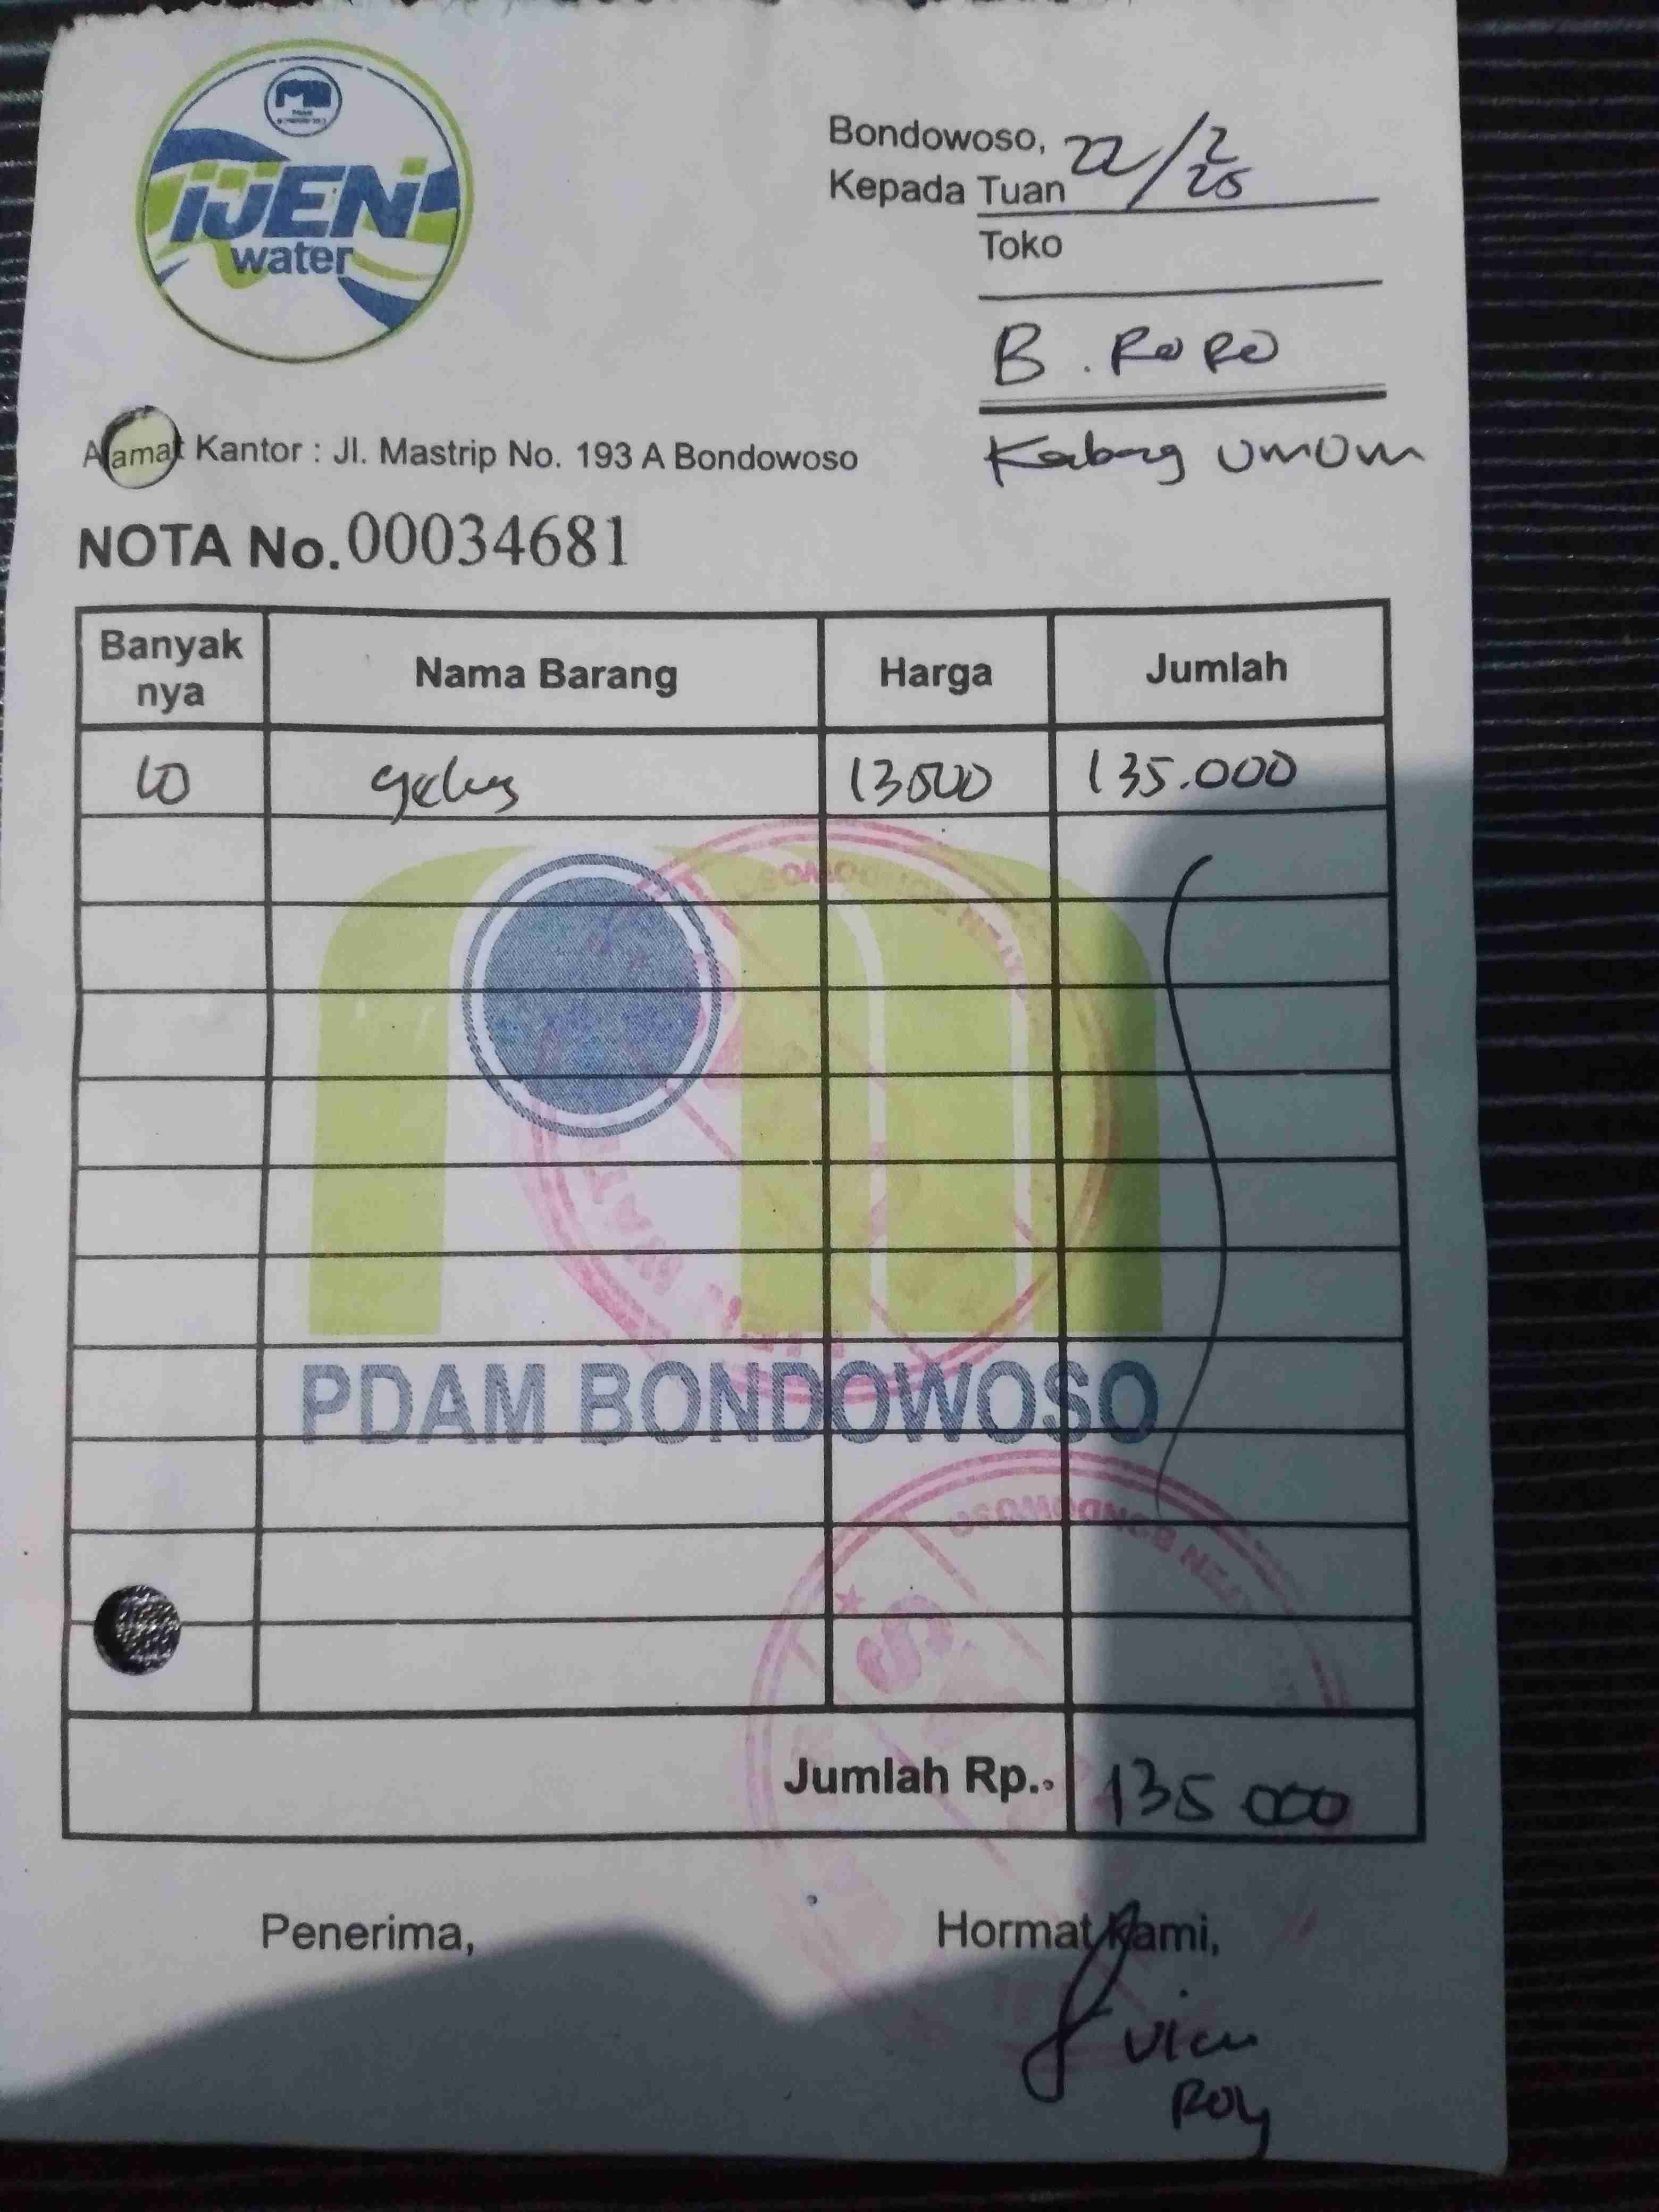 IJEN
water
Bondowoso, 22/2 25
Kepada Tuan
Toko
B. RORO
Kabag umum
Alamat Kantor : Jl. Mastrip No. 193 A Bondowoso
NOTA No. 00034681
Banyak nya Nama Barang Harga Jumlah
10 gelas 13500 135.000
PDAM BONDOWOSO
Jumlah Rp.. 135 000
Penerima, Hormat Kami,
Roy